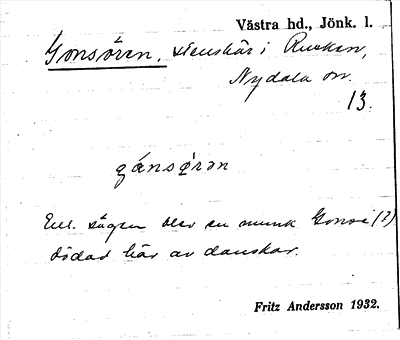 Västra hd., Jönk. l.
Gonsören, stenskär i Rusken,
Nydala sn.
13.
gánsø̀rən
Enl. sägen blev en munk Gonse (?)
dödad här av danskar.
Fritz Andersson 1932.